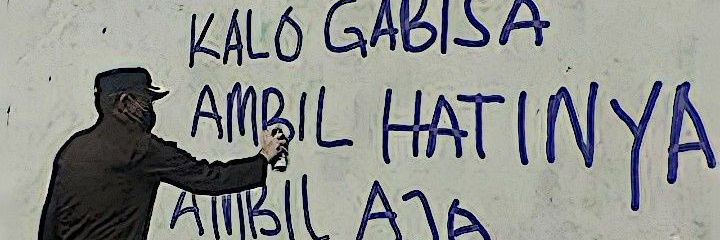 KALO GABISA
AMBIL HATINYA
AMBIL AJA